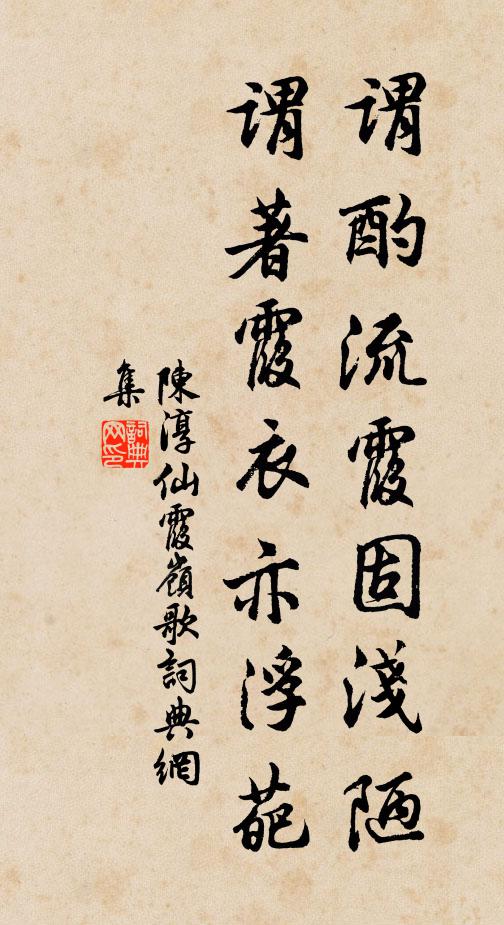 謂酌流霞固淺陋
謂著霞衣亦浮葩
陳淳仙霞嶺歌詞典網
集
詞典
网印